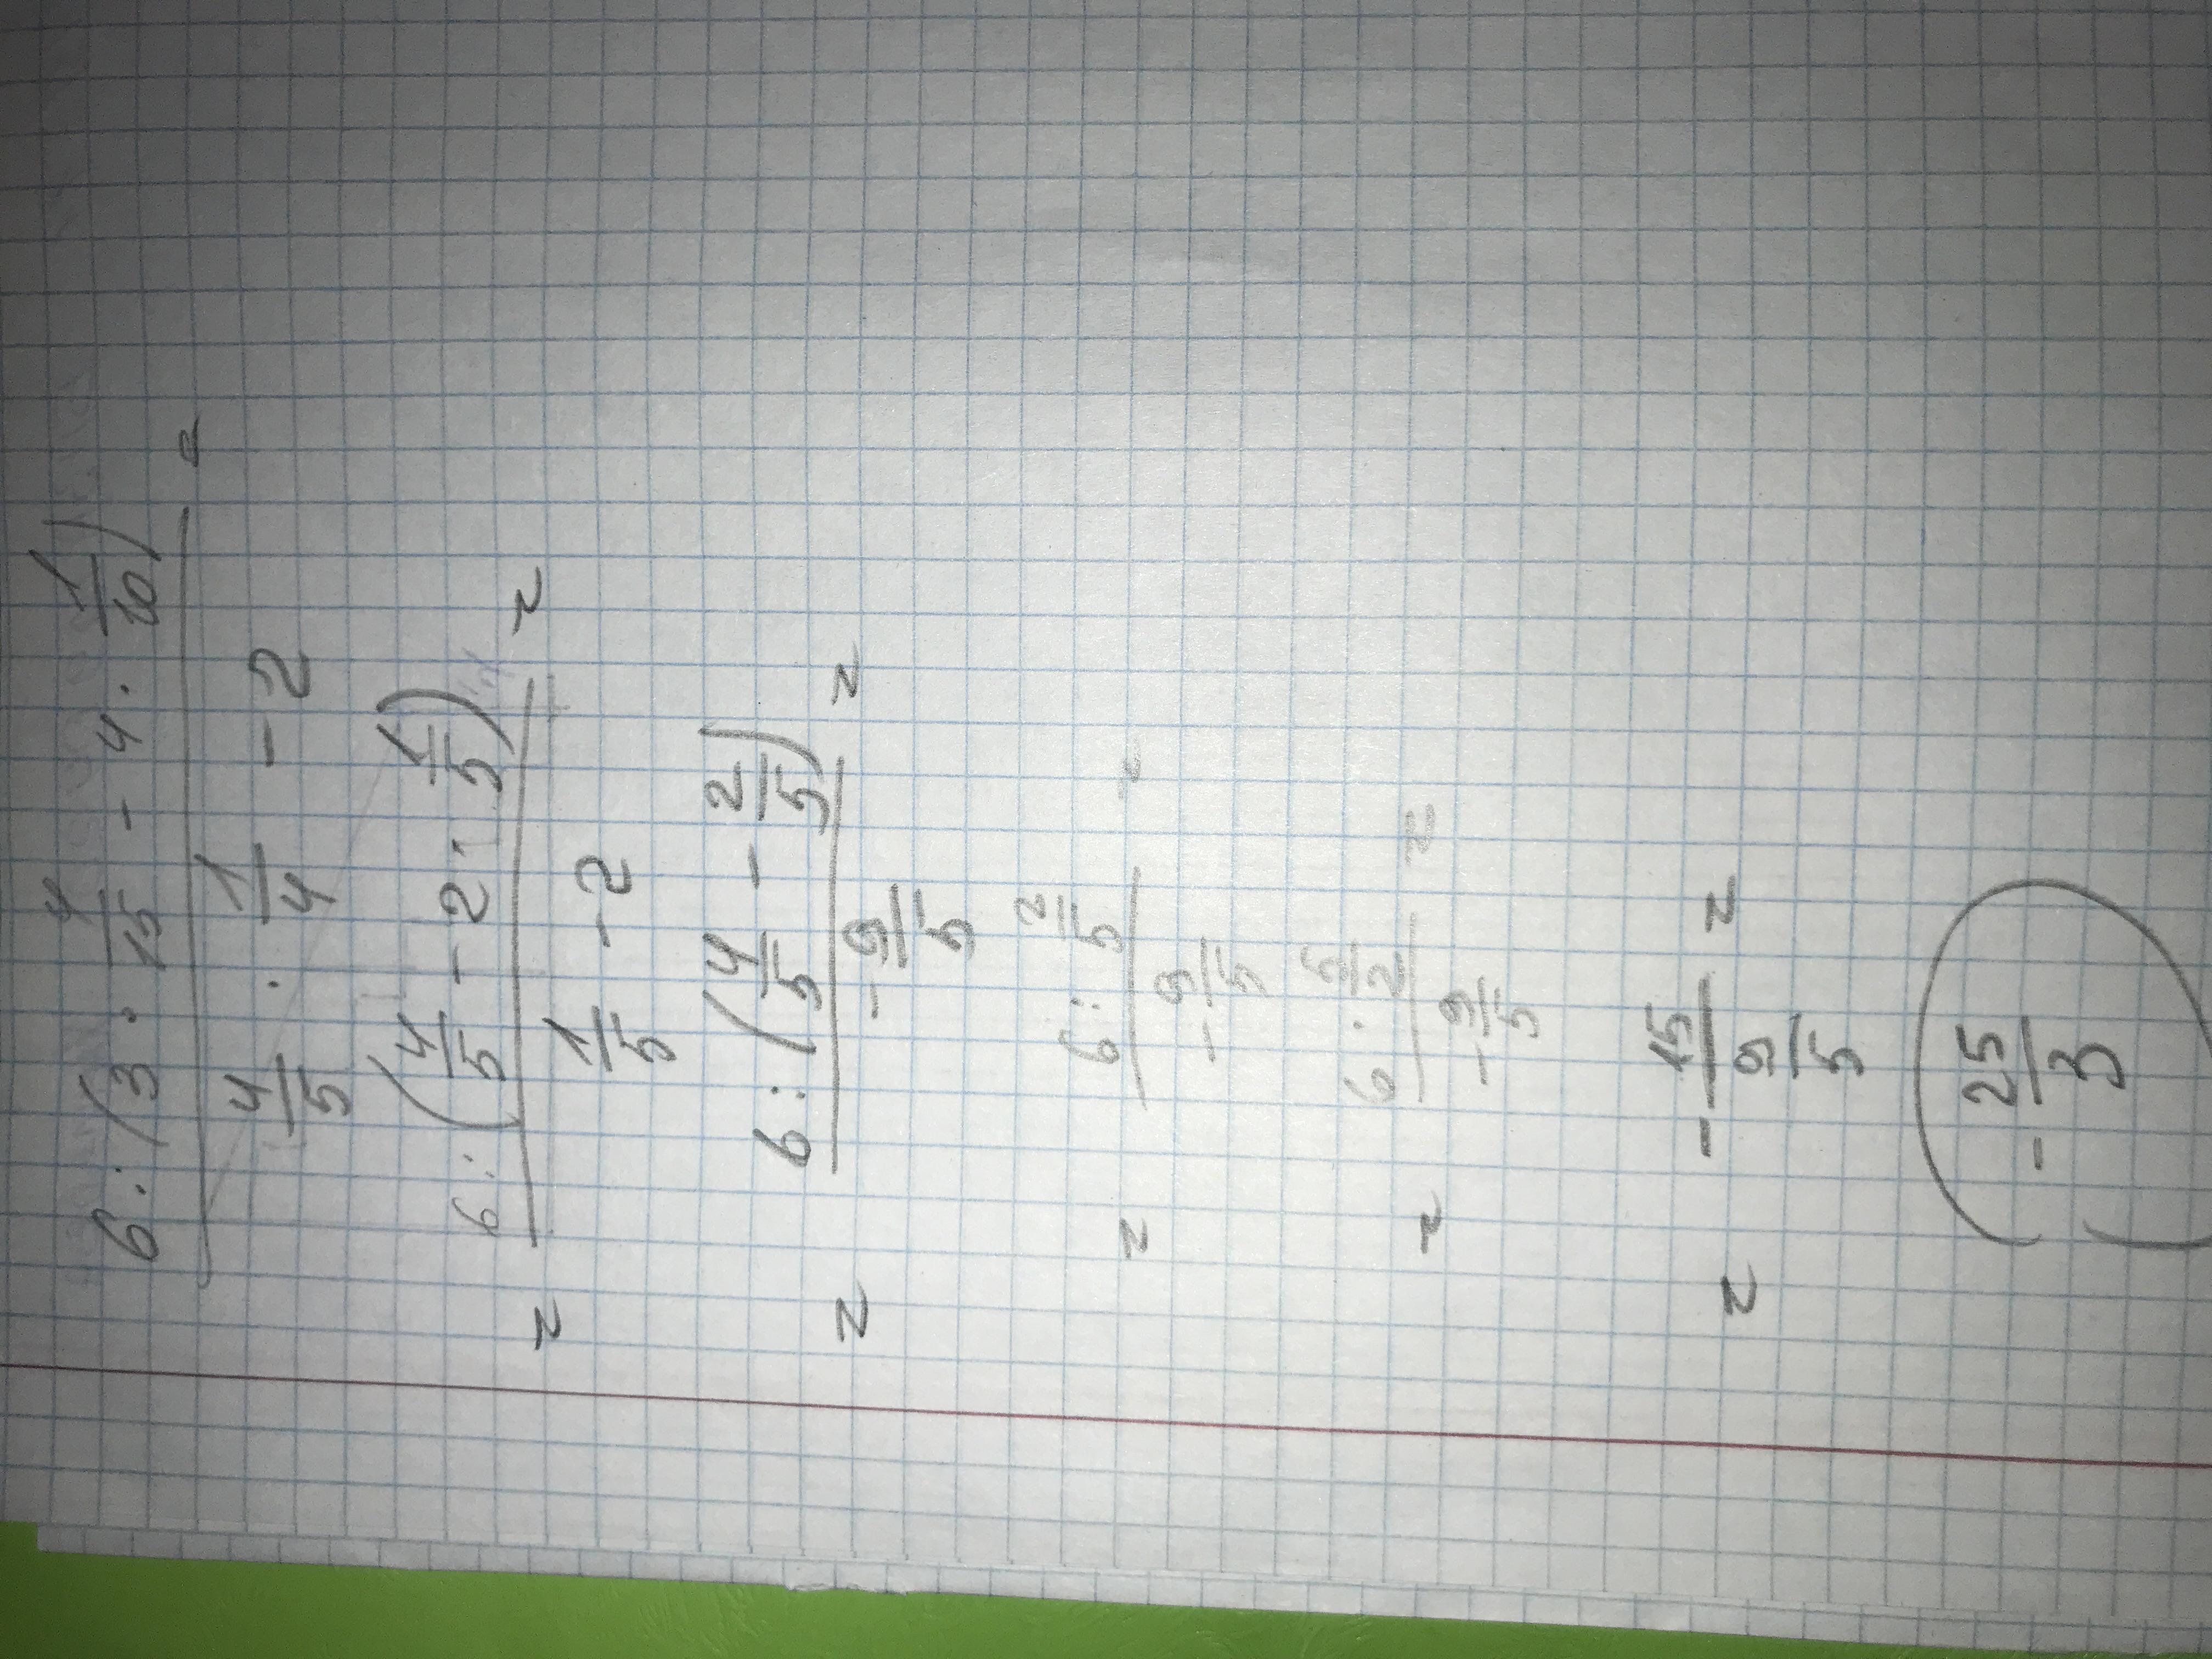 6 : (3 · 4/15 - 4 · 1/10) =
4/5 · 1/4 - 2
= 6 : (4/5 - 2 · 1/5) =
1/5 - 2
= 6 : (4/5 - 2/5) =
- 9/5
= 6 : 2/5 =
- 9/5
= 6 · 5/2 =
- 9/5
= - 15 =
9/5
- 25/3